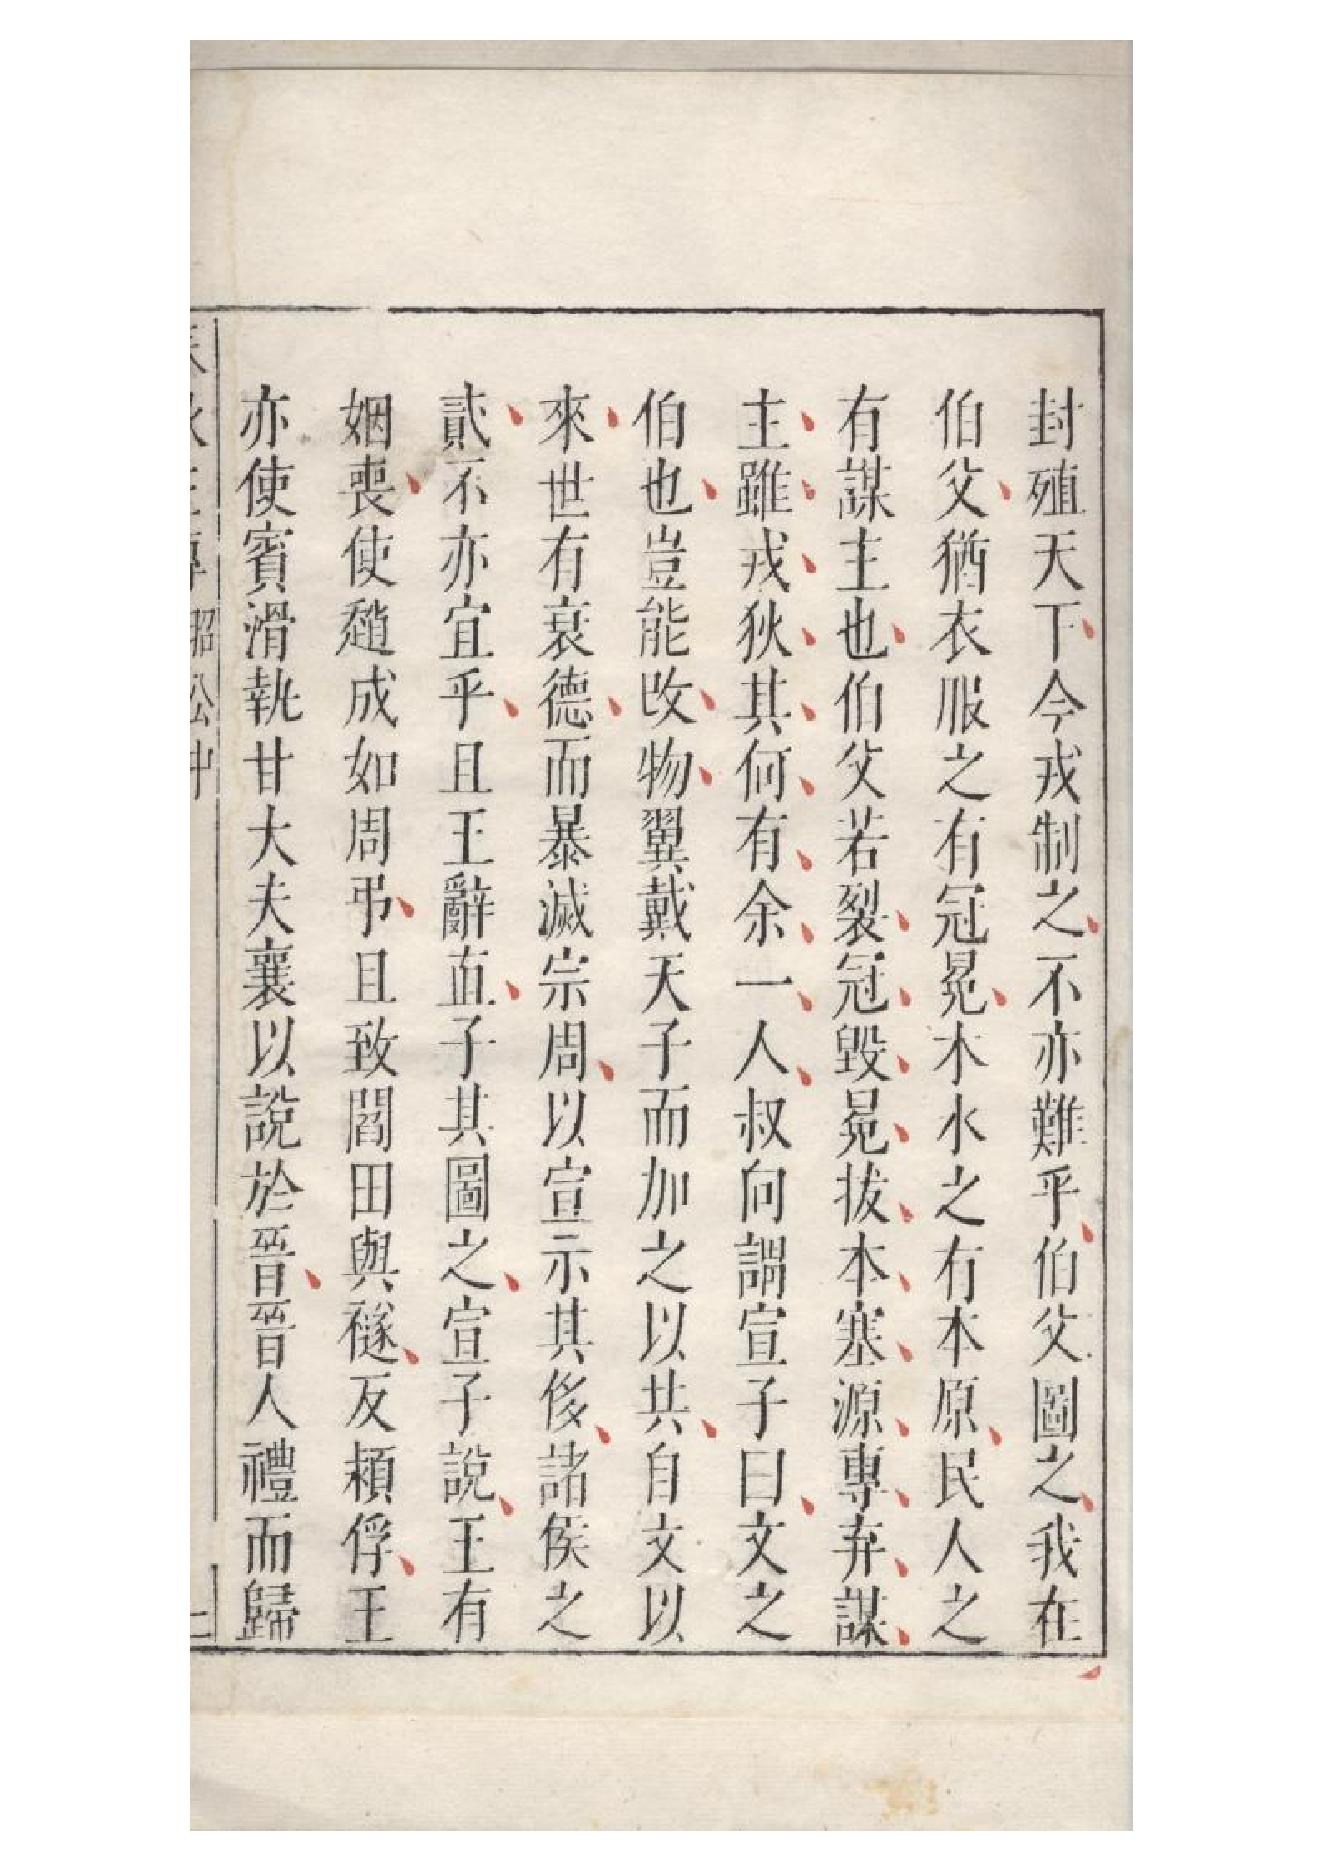 封殖天下今戎制之不亦難乎伯父圖之我在
伯父猶衣服之有冠冕木水之有本原民人之
有謀主也伯父若裂冠毀冕拔本塞源專弃謀
主雖戎狄其何有余一人叔向謂宣子曰文之
伯也豈能改物翼戴天子而加之以共自文以
來世有衰德而暴滅宗周以宣示其侈諸侯之
貳不亦宜乎且王辭直子其圖之宣子說王有
姻喪使趙成如周弔且致閻田與襚反潁俘王
亦使賓滑執甘大夫襄以說於晉晉人禮而歸